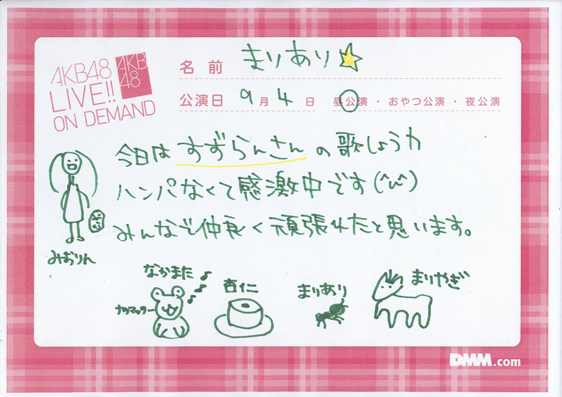 AKB48
LIVE!!
ON DEMAND
AKB
48
名前 まりあり☆
公演日 9月4日 昼公演・おやつ公演・夜公演
今日は すずらんさん の 歌しょう力
ハンパなくて感激中です(^u^)
みんなで仲良く頑張れたと思います。
みおりん
なかまた♪
杏仁
まりあり
まりやぎ
DMM.com